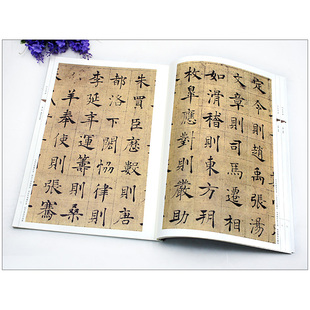 定令則趙禹張湯
文章則司馬遷相
如滑稽則東方朔
枚皐應對則嚴助
朱買臣歷數則唐
都洛下閎恊律則
李延年運籌則桑
羊奉使則張騫